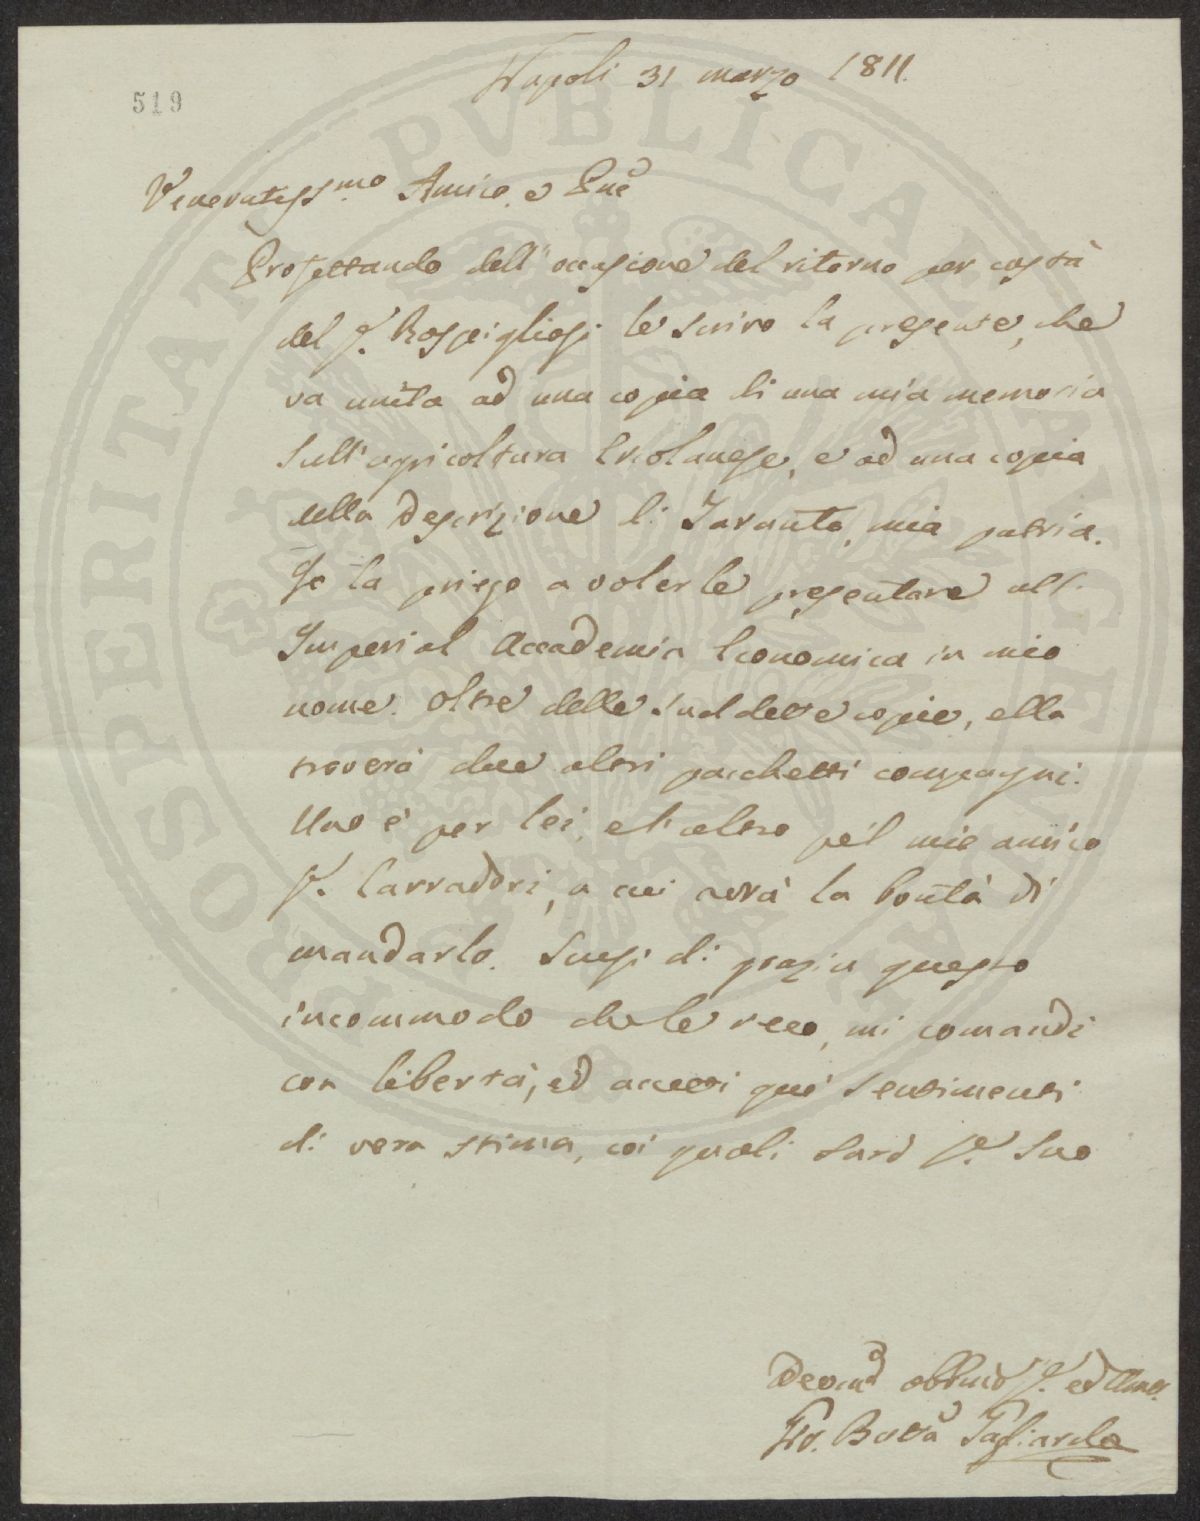 519
Napoli 31 marzo 1811.
Veneratiss.mo Amico e Pne
Profittando dell'occasione del ritorno per costà
del S. Rospigliosi le scrivo la presente, che
va unita ad una copia di una mia memoria
sull'agricoltura Ercolanese, e ad una copia
della Descrizione di Taranto, mia patria.
Io la priego a volerle presentare all'
Imperial Accademia Economica in mio
nome. Oltre delle suddette copie, ella
troverà due altri pacchetti compagni.
Uno è per lei, e l'altro pel mio amico
S. Carradori, a cui avrà la bontà di
mandarlo. Scusi di grazia questo
incommodo che le reco, mi comandi
con libertà, ed accetti que' sentimenti
di vera stima, coi quali sarò p. Suo
Devmo obbmo S. ed Amo.
Gio. Batta Gagliardo
PROSPERITATI PVBLICAE AVGENDAE